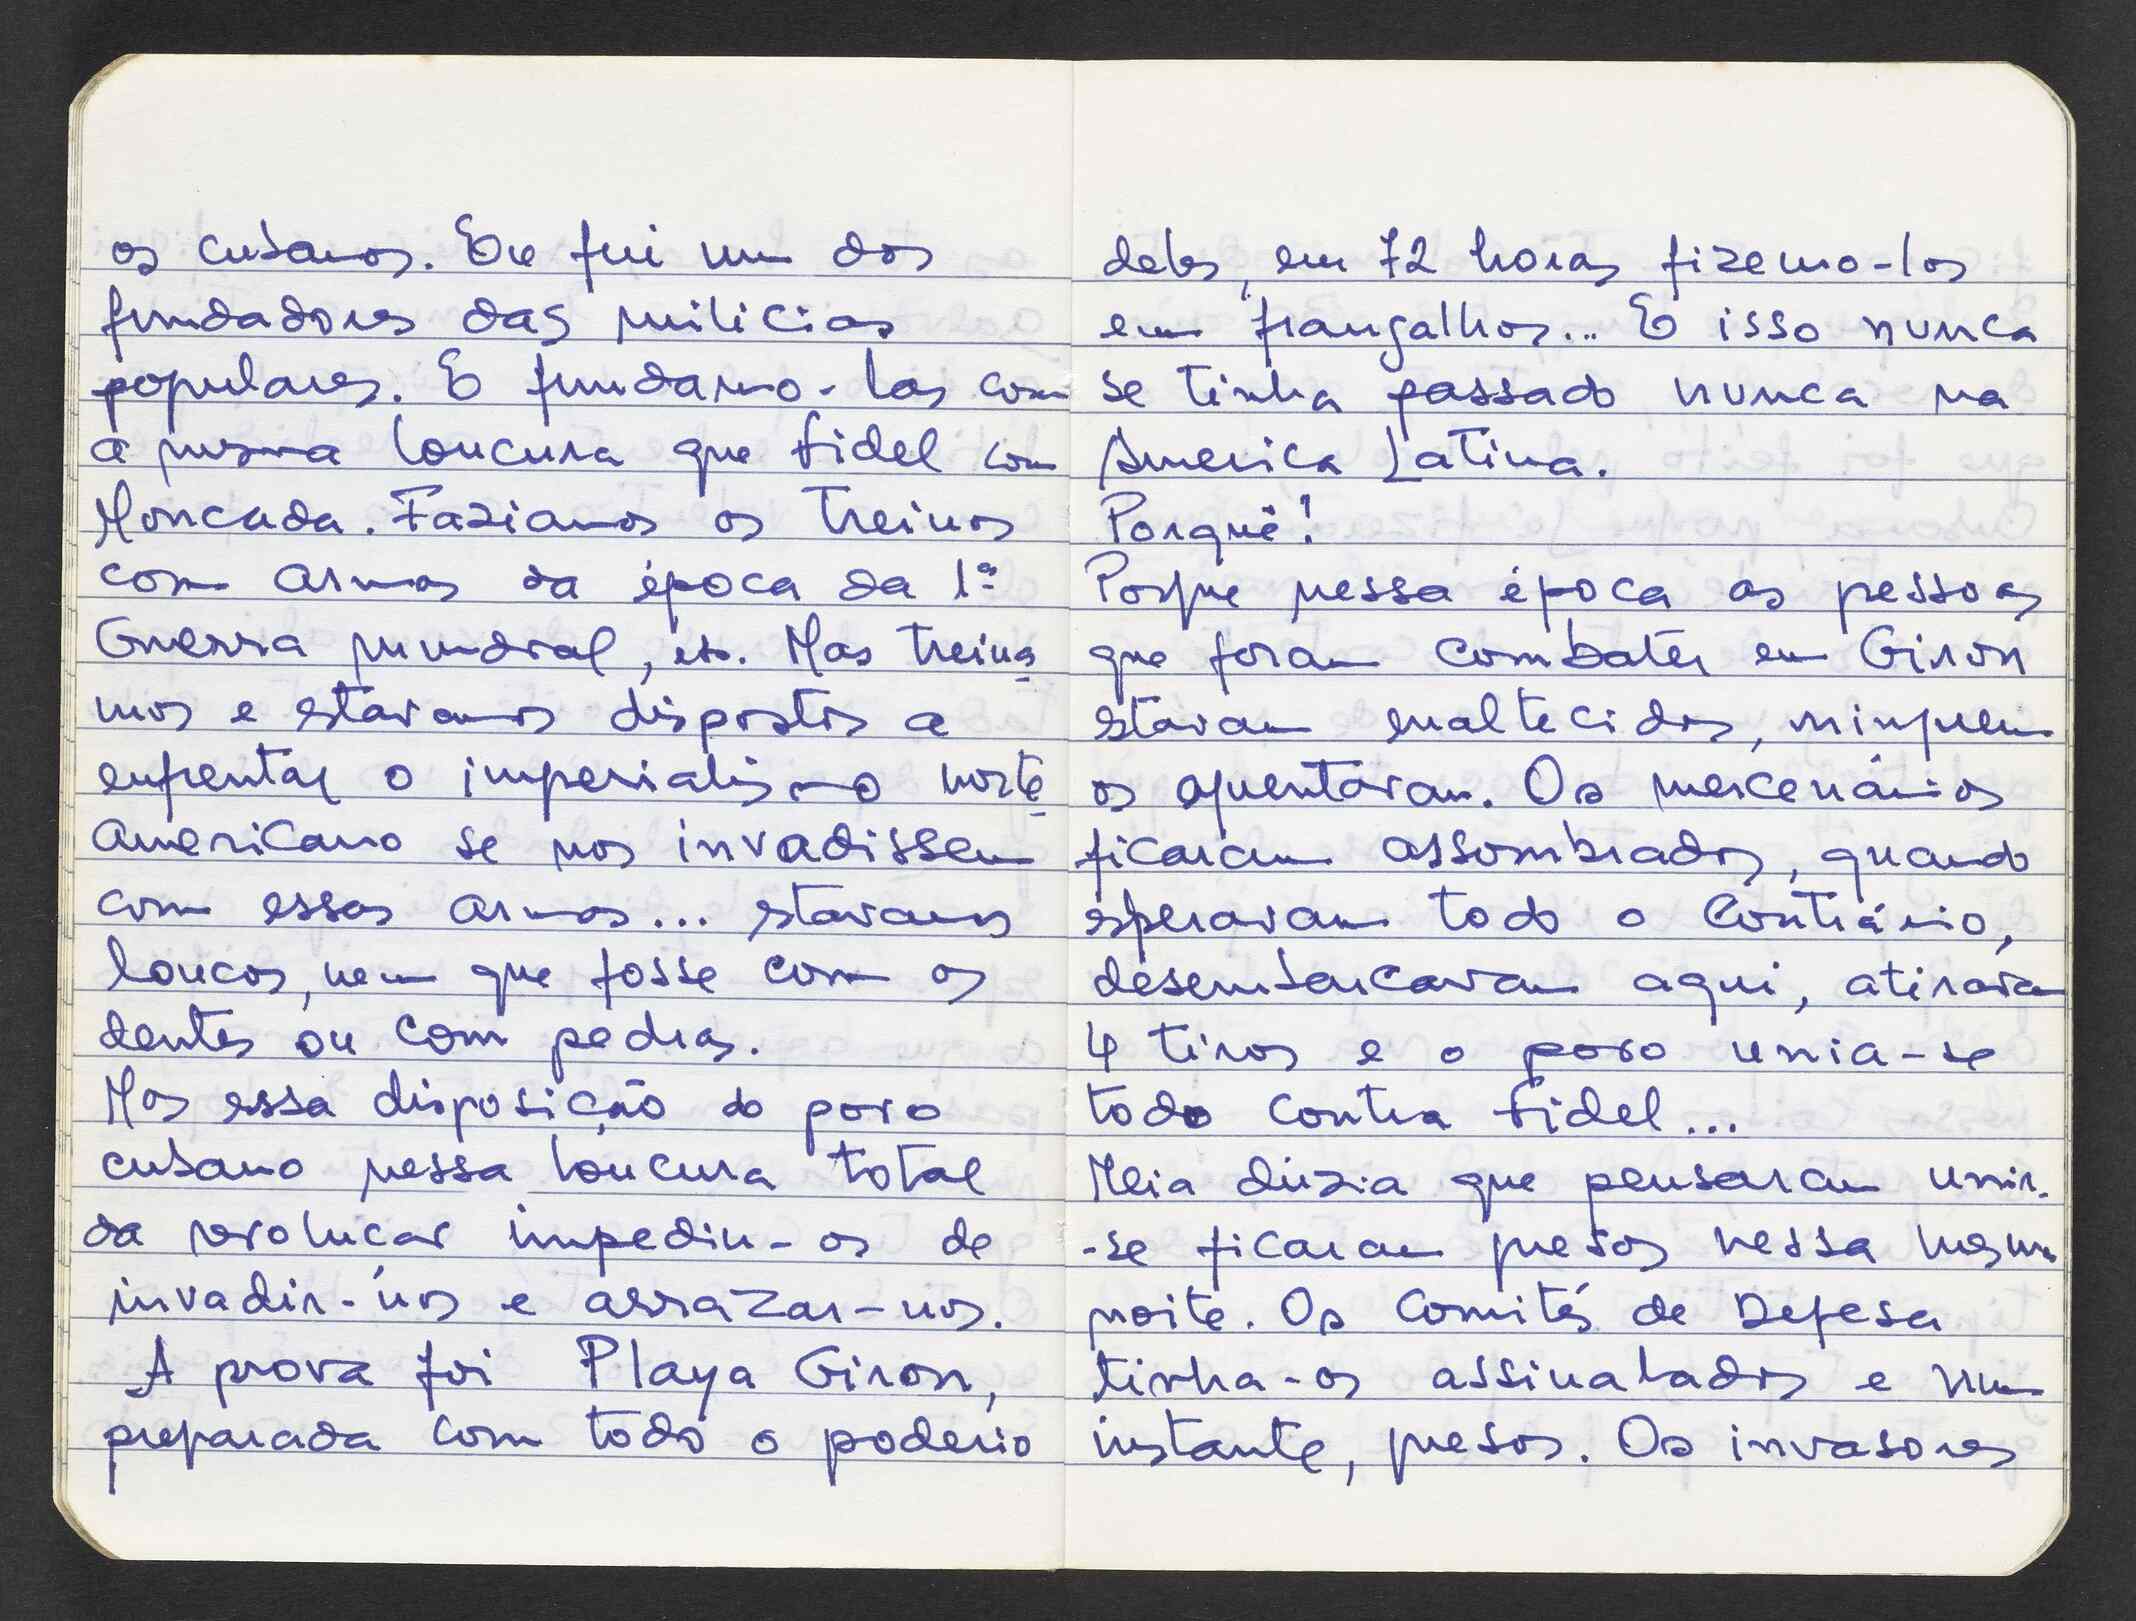 os cubanos. Eu fui um dos
fundadores das milicias
populares. E fundamo-las com
a mesma loucura que Fidel com
Moncada. Faziamos os treinos
com armas da época da 1ª
Guerra mundial, etc. Mas treina-
mos e estavamos dispostos a
enfrentar o imperialismo norte-
americano se nos invadissem
com essas armas... estavamos
loucos, nem que fosse com os
dentes ou com pedras.
Mas essa disposição do povo
cubano nessa loucura total
da revolução impediu-os de
invadir-nos e arrazar-nos.
A prova foi Playa Giron,
preparada com todo o poderio
deles, em 72 horas fizemo-los
em frangalhos... E isso nunca
se tinha passado nunca na
America Latina.
Porquê!
Porque nessa época as pessoas
que foram combater em Giron
estavam enaltecidas, ninguem
os aguentavam. Os mercenários
ficaram assombrados, quando
esperavam todo o contrário,
desembarcavam aqui, atiravam
4 tiros e o povo unia-se
todo contra Fidel...
Meia dúzia que pensaram unir-
-se ficaram presos nessa mesma
noite. Os Comités de Defesa
tinha-os assinalados e num
instante, presos. Os invasores